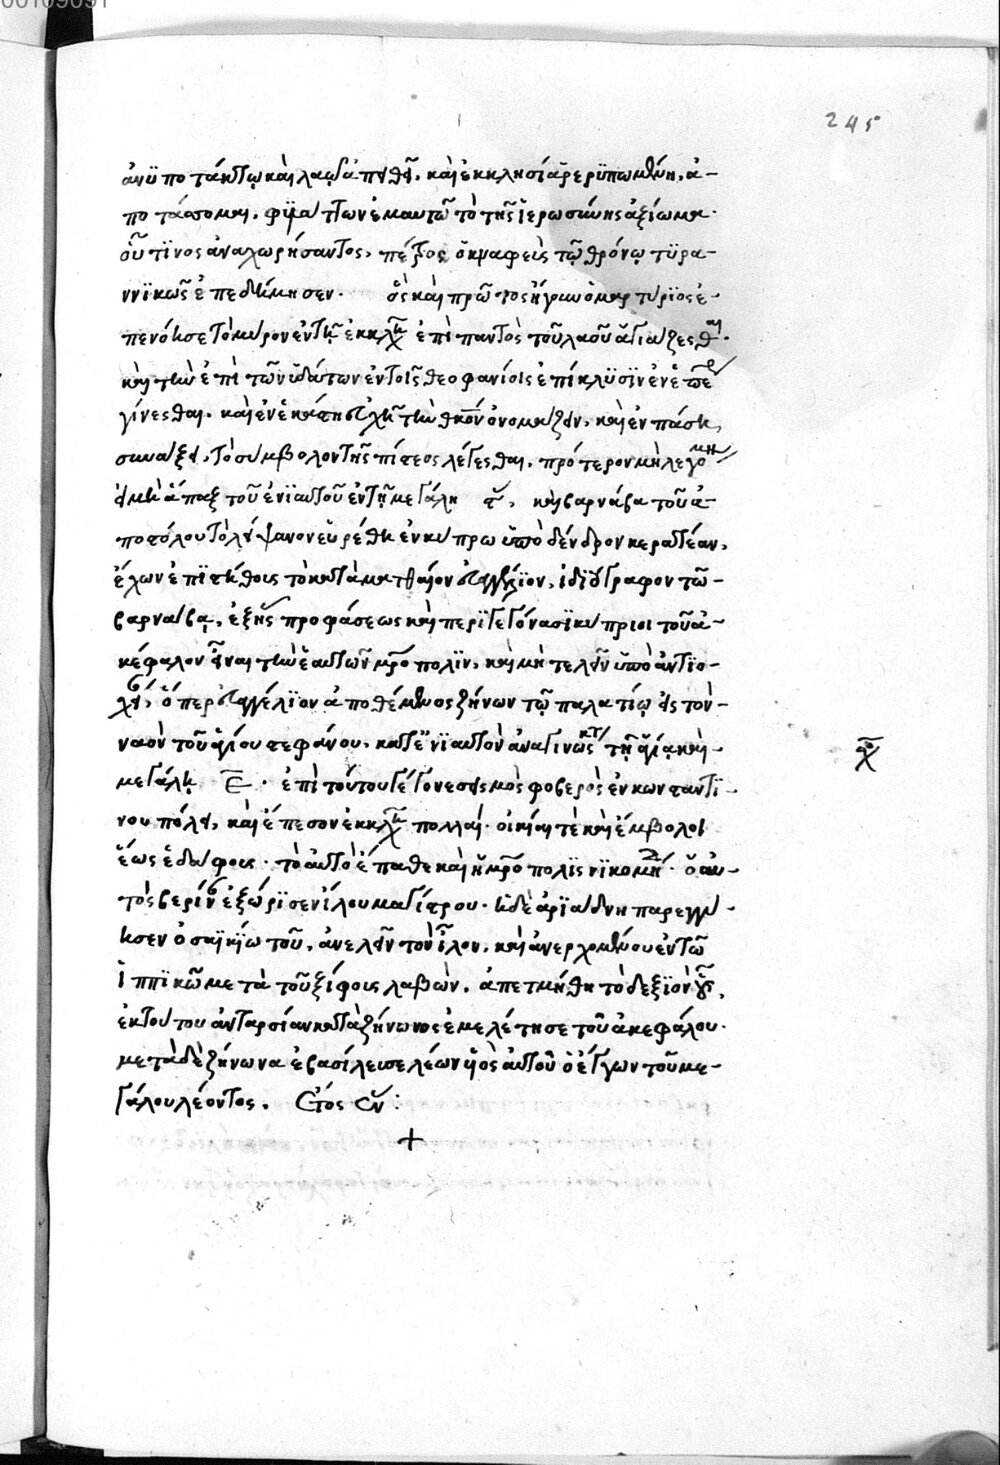 245
ἀνϋποτάκτῳ καὶ λαῷ ἀπειθεῖ. καὶ ἐκκλησίᾳ ῥερϋπωμένῃ, ἀ-
ποτάσσομαι. φϋλάττων ἐμαυτῶ τὸ τῆς ἱερωσύνης ἀξίωμα.
οὗ τϊνος ἀναχωρήσαντος, πέτρος ὁ κναφεὺς τῷ θρόνῳ τϋρα-
ννϊκῶς ἐπεδήμησεν. ὃς καὶ πρῶτος
πενόησε τὸ μύρον ἐν τῇ ἐκκλη ἐπὶ παντὸς τοῦ λαοῦ ἁγιάζεσθαι.
καὶ τὴν ἐπὶ τῶν ὑδάτων ἐν τοῖς θεοφανίοις ἐπίκλϋσϊν ἐν ἑσπε
γίνεσθαι. καὶ ἐν ἑκάστη εὐχῆ τὴν θκον ὀνομάζειν, καὶ ἐν πάση
συνάξει, τὸ σύμβολον τῆς πίστεος λέγεσθαι. πρότερον μὴ λεγομένου
εἰ μὴ ἅπαξ τοῦ ἐνϊαυτοῦ ἐν τῇ μεγάλη καὶ βαρνάβα τοῦ ἀ-
ποστόλου τὸ λείψανον εὑρέθη ἐν κύπρω ὑπὸ δένδρον κερατέαν,
ἔχων ἐπϊ στήθους τὸ κατὰ ματθαίον εὐαγγέλϊον, ἰδϊόγραφον τῶ-
βαρνάβᾳ, ἐξ ἧς προφάσεως καὶ περϊγεγόνασϊ κύπριοι τοῦ ἀ-
κέφαλον εἶναι τὴν ἑαυτῶν μρο πολϊν, καὶ μὴ τελεῖν ὑπὸ ἀντϊο-
χει, ὅπερ εὐαγγέλϊον ἀποθέμενος ζήνων τῷ παλατίῳ εἰς τὸν-
ναὸν τοῦ ἁγίου στεφάνου. κατ' ἔνϊαυτὸν ἀναγινώσκετ τῇ ἁγίᾳ καὶ-
μεγάλῃ ε. ἐπὶ τούτου γέγονε σεισμὸς φοβερὸς ἐν κωνσταντϊ-
νουπόλει, καὶ ἔπεσον ἐκκλη πολλαί. οἰκίαι τὲ καὶ ἔμβολοι
ἕως ἐδάφους. τὸ αὐτὸ ἔπαθε καὶ ἡ μρο πολϊς νϊκομη. ὁ αὐ-
τὸς βερίνην ἐξώρϊσεν ἴλου μαγίστρου. ἡ δὲ ἀρϊάδνη παρεγγύ-
ησεν ἀνελεῖν τὸν ἶλον. καὶ ἀνερχομένου ἐν τῶ
ἱππϊκῶ μετὰ τοῦ ξίφους λαβὼν, ἀπετμήθη τὸ δεξϊὸν οὖς,
ἐκ τούτου ἀνταρσίαν κατὰ ζήνωνος ἐμελέτησε τοῦ ἀκεφάλου.
μετὰ δὲ ζήνωνα ἐβασίλευσε λέων υἱὸς αὐτοῦ ὁ ἔγγων τοῦ με-
γάλου λέοντος. ἔτος
+